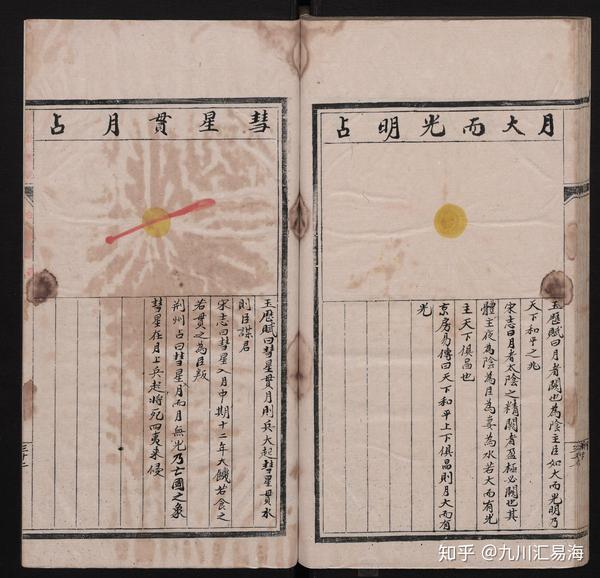 月大而光明占
玉曆賦曰月者闕也為陰主臣如大而光明乃
天下和平之兆
宋志曰月者太陰之精闕者盈極必闕也其
體主夜為陰為臣為妾為水若大而有光
主天下俱昌也
京房易傳曰天下和平上下俱昌則月大而有
光
彗星貫月占
玉曆賦曰彗星貫月則兵大起彗星貫水
則臣謀君
宋志曰彗星入月中期十二年大饑若食之
若貫之為臣叛
荆州占曰彗星月而月無光乃亡國之象
彗星在月上兵起將死四夷來侵
三十二
知乎 @九川汇易海